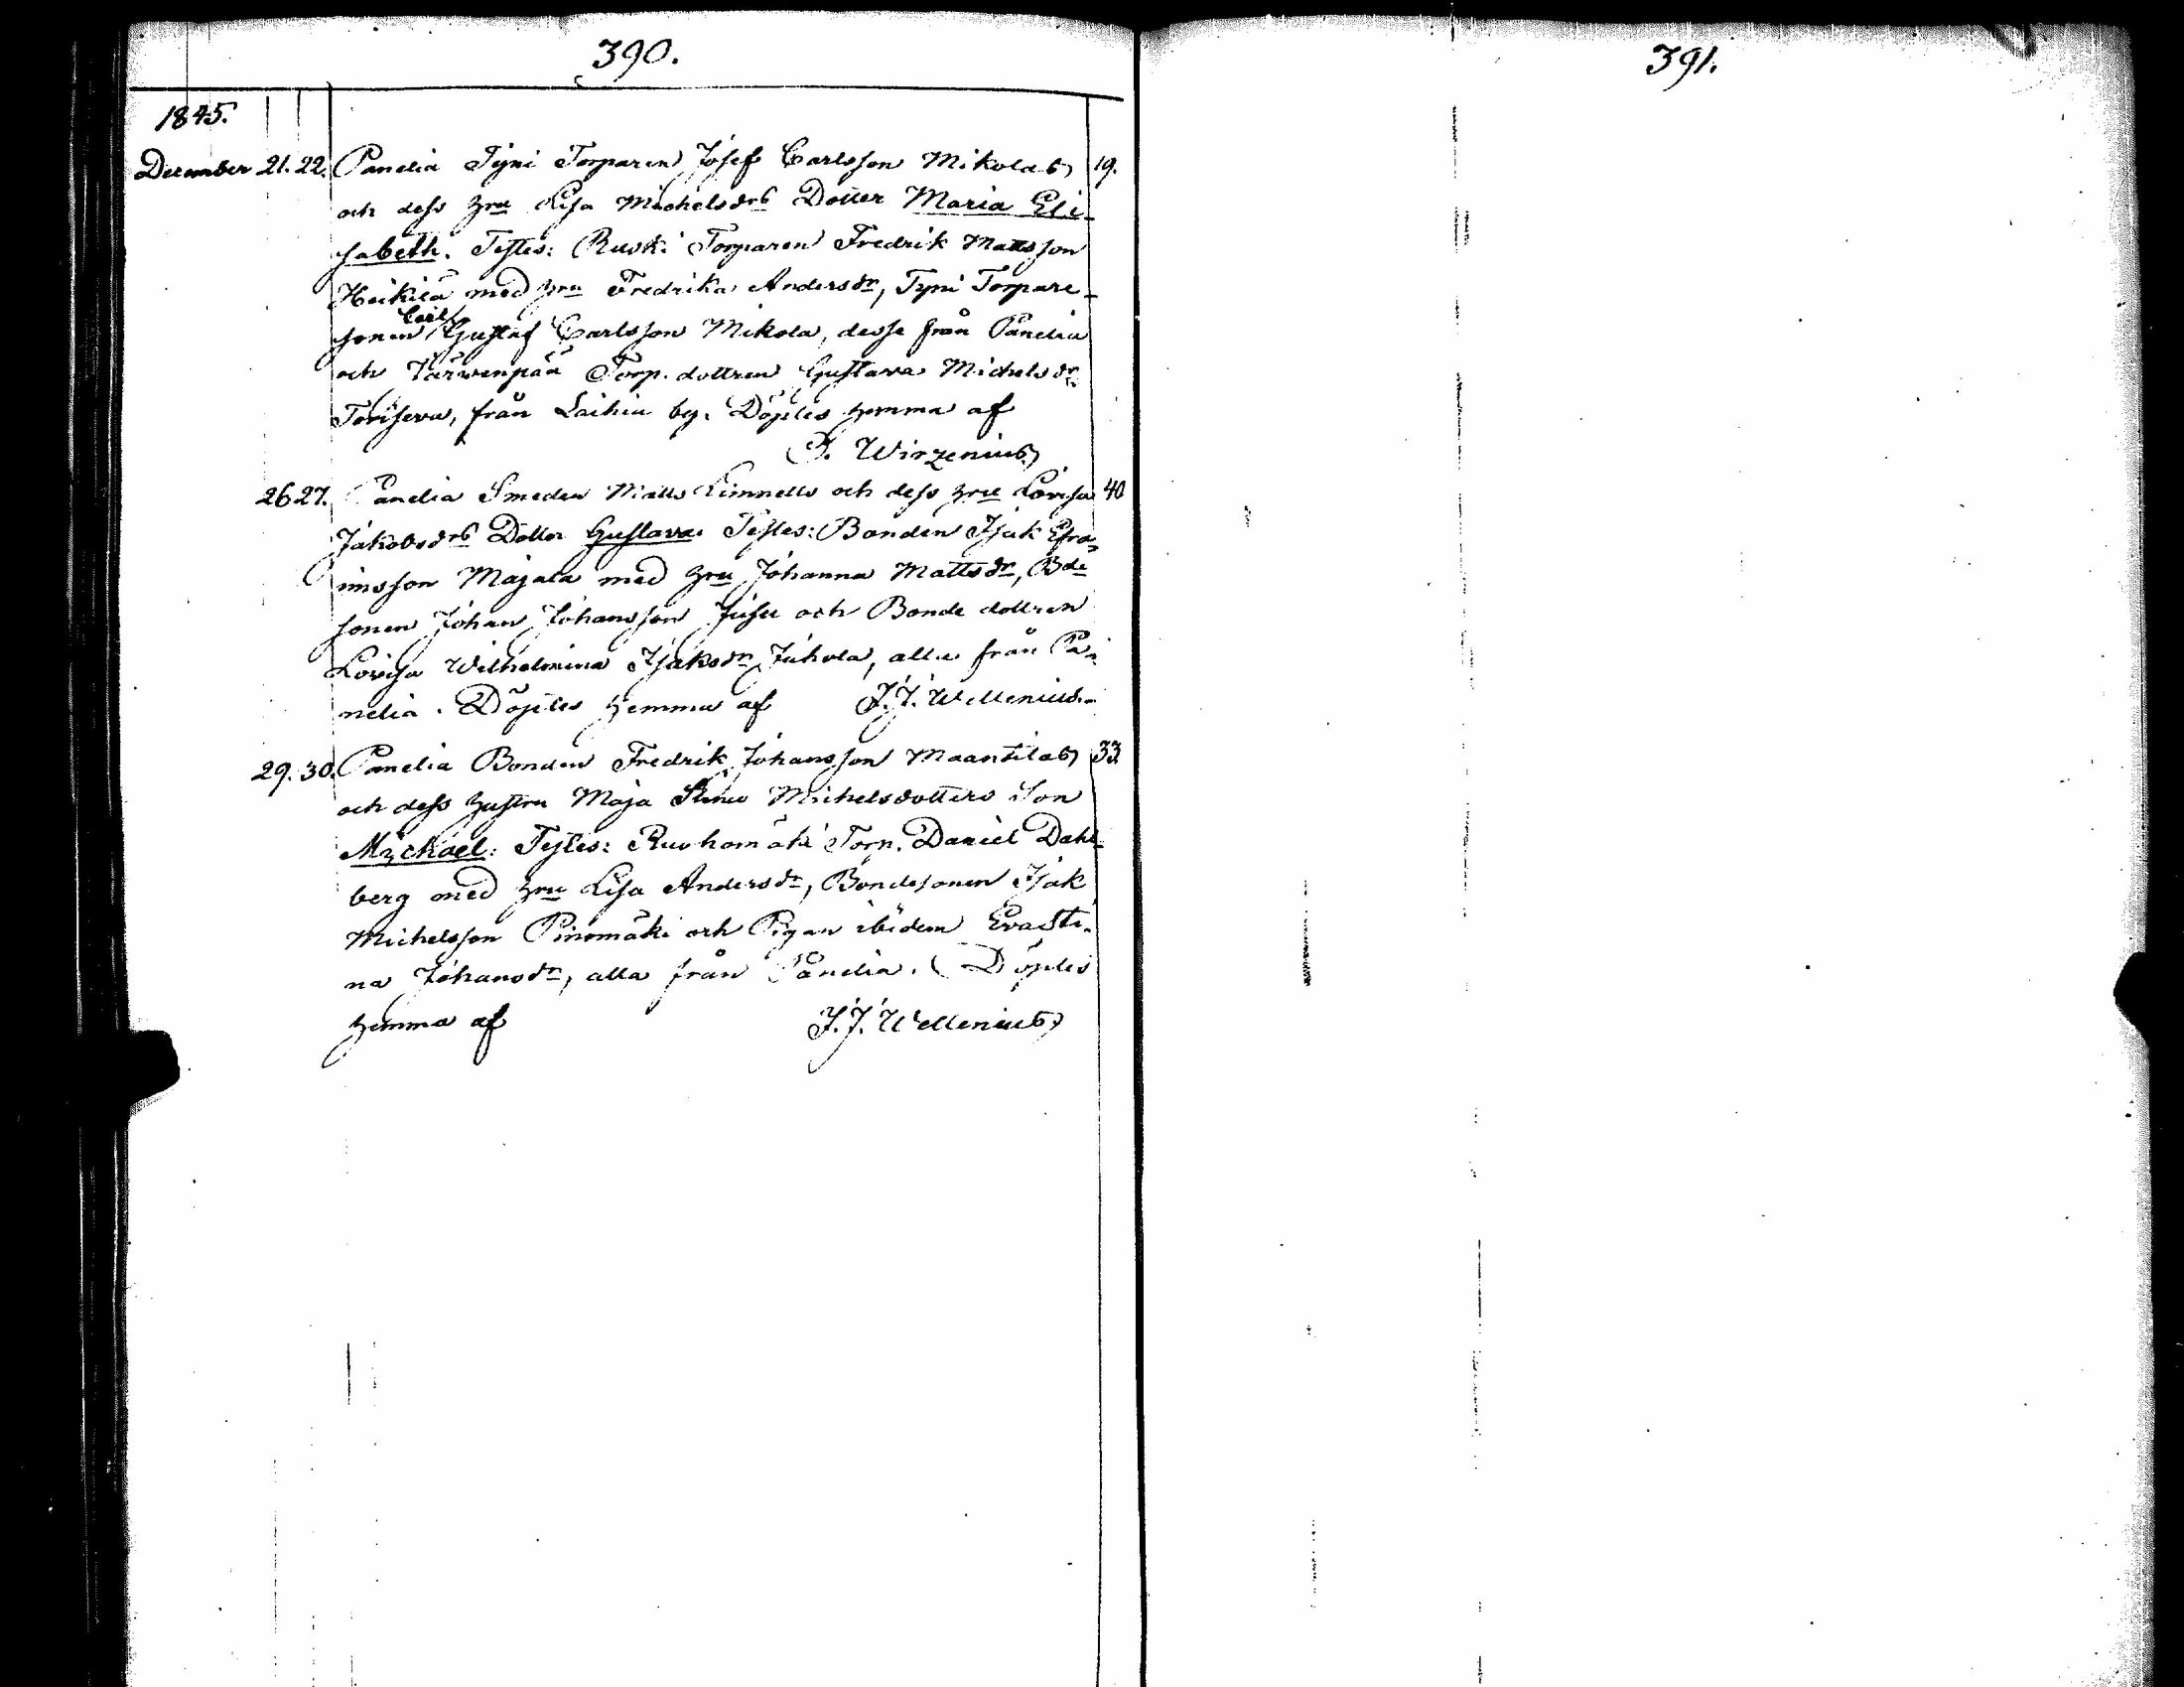 390.
1845.
December 21. 22. Panelia Tyni Torparen Josef Carlsson Mikolas 19.
och dess Hru Lisa Michelsdrs Dotter Maria Eli-
sabeth. Testes: Ruski Torparen Fredrik Mattsson
Heikilä med Hru Fredrika Andersdr, Tyni Torpare-
sonen Carl Gustaf Carlsson Mikola, desse från Panelia
och Järvenpää Torp. dottren Gustava Michelsdr
från Laihia by. Döptes hemma af
Wirzenius
26 27. Panelia Smeden Matts Linnells och dess Hru Lovisa 40
Jakobsdrs Dotter Gustava. Testes: Bonden Isak Efra-
imsson Majala med Hru Johanna Mattsdr, Bde
sonen Johan Johansson Jusu och Bonde dottren
Lovisa Wilhelmina Isaksdr Juhola, alla från Pa-
nelia. Döptes hemma af J. J. Wellenius.
29. 30. Panelia Bonden Fredrik Johansson Maantilas 33
och dess Hustru Maja Stina Michelsdotters Son
Michael: Testes: Ruohomäki Torp. Daniel Dahl-
berg med Hru Lisa Andersdr, Bondesonen Isak
Michelsson Pinomäki och Pigan ibidem Eva Sti-
na Johansdr, alla från Panelia. Döptes
hemma af J. J. Wellenius
391.